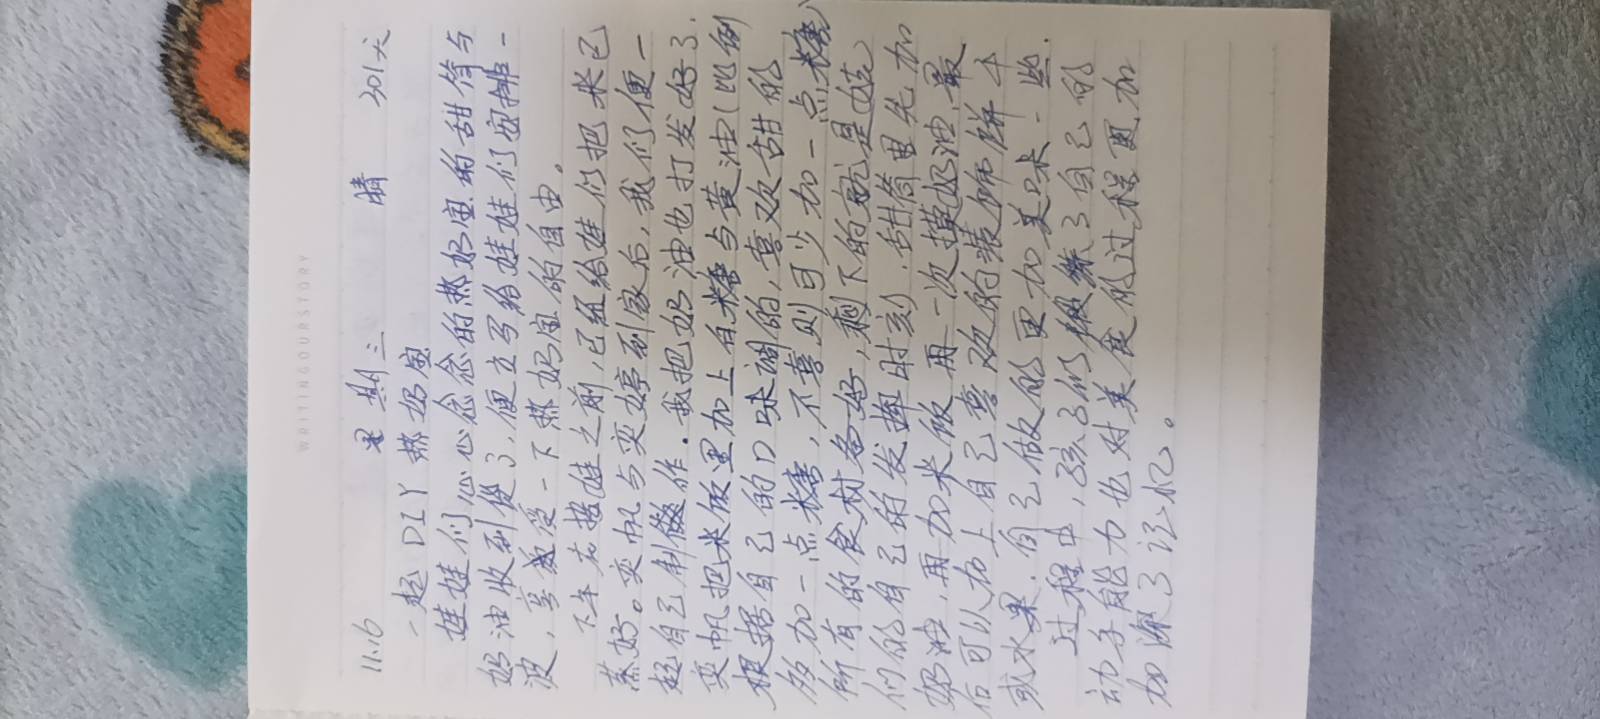 WRITINGOURSTORY
11.16 星期三 晴 301天
一起DIY热奶宝
娃娃们心心念念的热奶宝的甜筒与
奶油收到货了,便立马给娃娃们安排一
波,享受一下热奶宝的自由。
下午在接娃之前,已经给娃们把米已
蒸好。奕帆与奕婷到家后,我们便一
起自己制作。我把奶油也打发好了.
奕帆把米饭里加上白糖与黄油(比例
根据自己的口味调的,喜欢甜的
多加一点糖,不喜则可少加一点糖)
所有的食材备好,剩下的就是娃
们的自己的发挥时刻.甜筒里先加
奶油,再加米饭,再一次抹奶油,最
后可以加上自己喜欢的装饰饼干
或水果.自己做的更加美味一些.
过程中,孩子们锻练了自己的
动手能力也对美食的过程更加
加深了记忆。